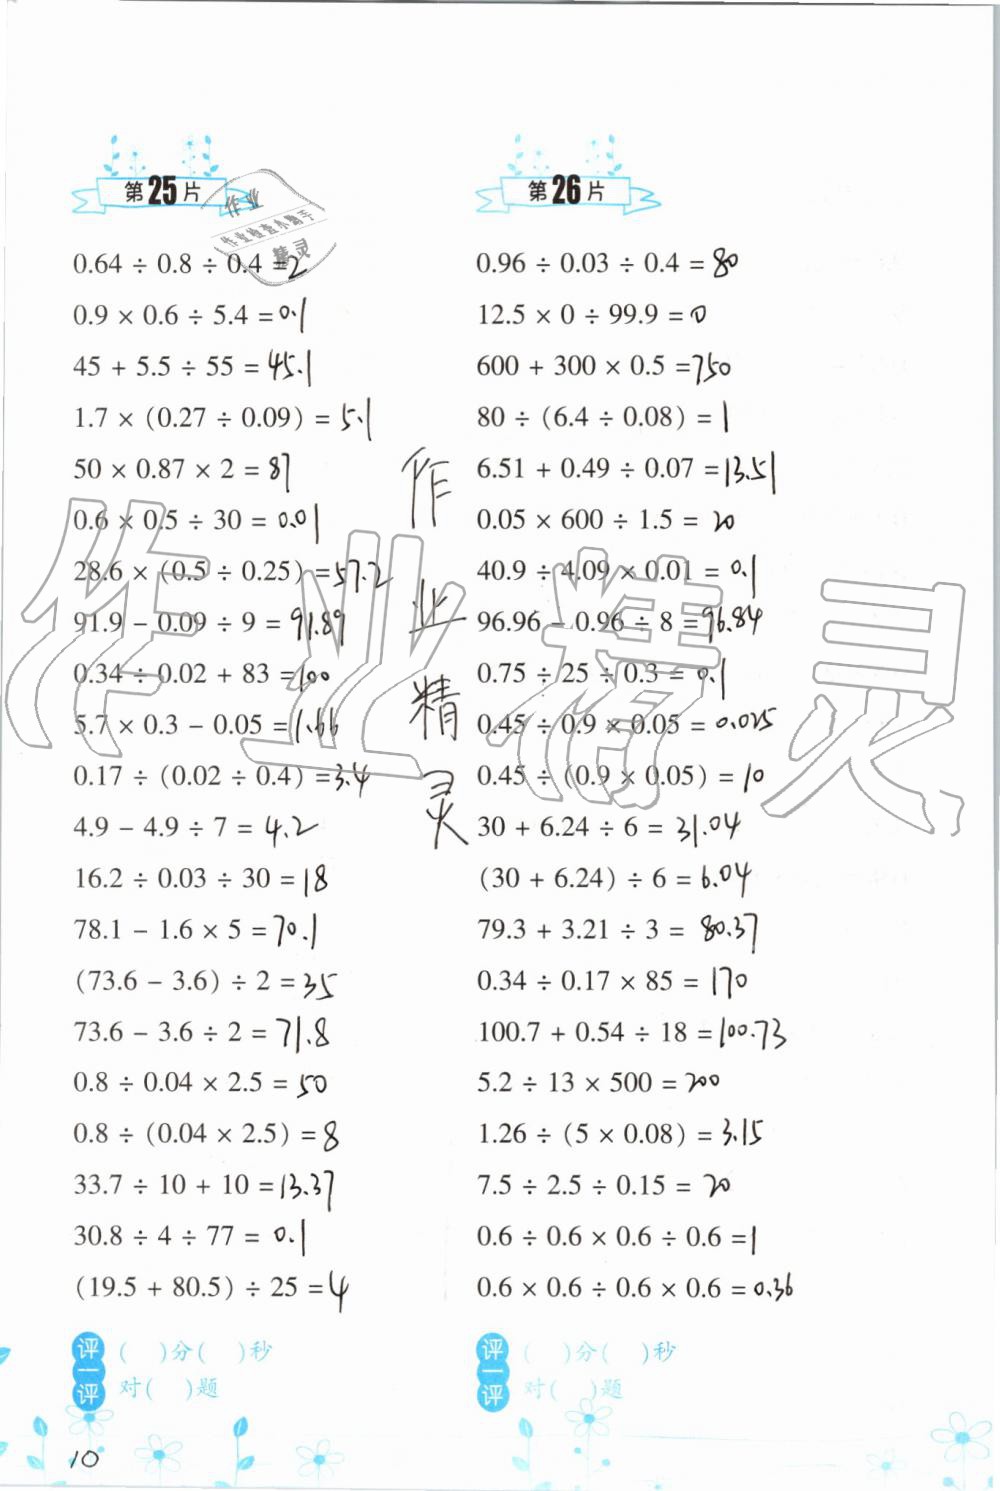 第25片
0.64 ÷ 0.8 ÷ 0.4 =2
0.9 × 0.6 ÷ 5.4 =0.1
45 + 5.5 ÷ 55 =45.1
1.7 × (0.27 ÷ 0.09) =5.1
50 × 0.87 × 2 =87
0.6 × 0.5 ÷ 30 =0.01
28.6 × (0.5 ÷ 0.25) =57.2
91.9 − 0.09 ÷ 9 =91.89
0.34 ÷ 0.02 + 83 =100
5.7 × 0.3 − 0.05 =1.66
0.17 ÷ (0.02 ÷ 0.4) =3.4
4.9 − 4.9 ÷ 7 =4.2
16.2 ÷ 0.03 ÷ 30 =18
78.1 − 1.6 × 5 =70.1
(73.6 − 3.6) ÷ 2 =35
73.6 − 3.6 ÷ 2 =71.8
0.8 ÷ 0.04 × 2.5 =50
0.8 ÷ (0.04 × 2.5) =8
33.7 ÷ 10 + 10 =13.37
30.8 ÷ 4 ÷ 77 =0.1
(19.5 + 80.5) ÷ 25 =4
评一评
( )分( )秒
对( )题
第26片
0.96 ÷ 0.03 ÷ 0.4 =80
12.5 × 0 ÷ 99.9 =0
600 + 300 × 0.5 =750
80 ÷ (6.4 ÷ 0.08) =1
6.51 + 0.49 ÷ 0.07 =13.51
0.05 × 600 ÷ 1.5 =20
40.9 ÷ 4.09 × 0.01 =0.1
96.96 − 0.96 ÷ 8 =96.84
0.75 ÷ 25 ÷ 0.3 =0.1
0.45 ÷ 0.9 × 0.05 =0.025
0.45 ÷ (0.9 × 0.05) =10
30 + 6.24 ÷ 6 =31.04
(30 + 6.24) ÷ 6 =6.04
79.3 + 3.21 ÷ 3 =80.37
0.34 ÷ 0.17 × 85 =170
100.7 + 0.54 ÷ 18 =100.73
5.2 ÷ 13 × 500 =200
1.26 ÷ (5 × 0.08) =3.15
7.5 ÷ 2.5 ÷ 0.15 =20
0.6 ÷ 0.6 × 0.6 ÷ 0.6 =1
0.6 × 0.6 ÷ 0.6 × 0.6 =0.36
评一评
( )分( )秒
对( )题
作业精灵
作业精灵
作业
作业检查小帮手
精灵
10